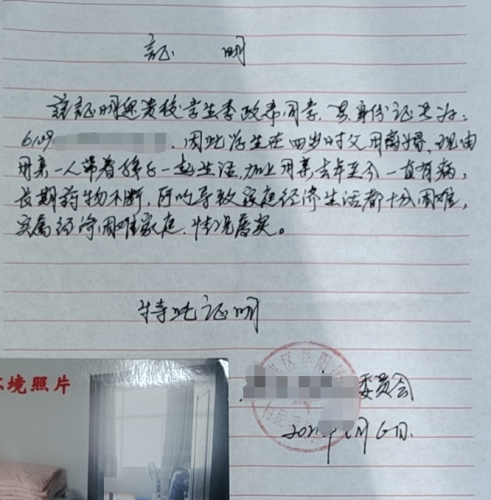 证 明
兹证明贵校学生李政希同学,其身份证号为:
6109 因此学生在四岁时父母离婚,现由
母亲一人带着孩子一起生活,加上母亲去年至今一直有病,
长期药物不断,所以导致家庭经济生活都十分困难,
实属经济困难家庭,情况属实。
特此证明
委员会
月6日
环境照片